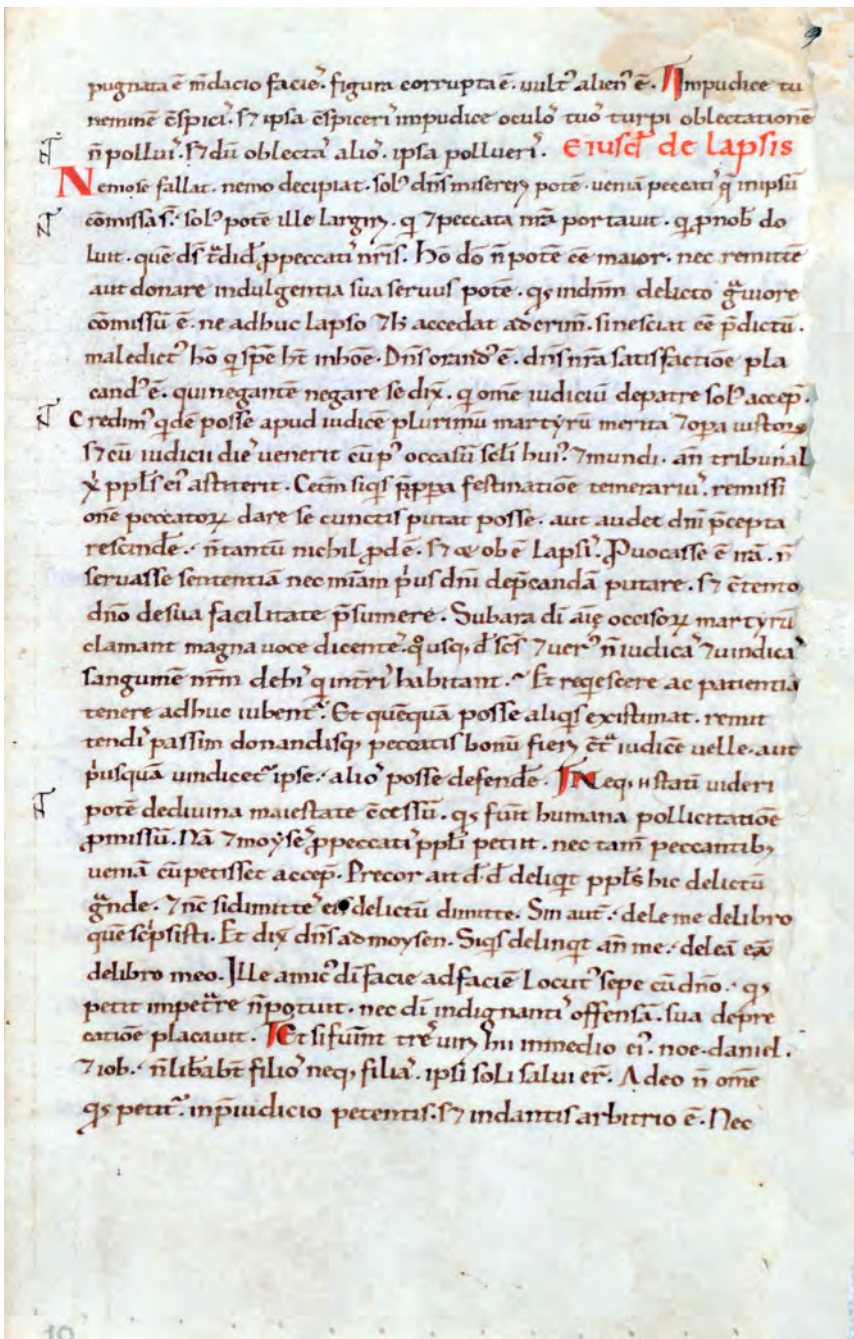 9
pugnata ē m̄dacio facie᾽. figura corrupta ē. uult᾽ alien᾽ ē. Impudice tu
neminē c̄spici᾽. s7 ipsa c̄spiceri᾽ impudice oculo᾽ tuo᾽ turpi oblectationē
n̄ pollui᾽. s7 dū oblecta᾽ alio᾽. ipsa pollueri᾽. Eiusd᾽ de lapsis
Nemo se fallat. nemo decipiat. sol᾽ dn̄s misereri potē. ueniā peccati᾽ q̄ in ipsū
cōmissa s᾽. sol᾽ potē ille largiri. q᾽ 7 peccata nr̄a portauit. q᾽ ꝓ nob᾽ do
luit. quē ds̄ t᾽did᾽ ꝓ peccati᾽ nr̄is. hō dō n̄ potē eē maior. nec remittē
aut donare indulgentia sua seruus potē. qꝫ in dn̄m delicto g᾽uiore
cōmissū ē. ne adhuc lapso 7 h᾽ accedat ad crim̄. si nesciat eē p̄dictū.
maledict᾽ hō q᾽ spē ht̄ in hōē. Dn̄s orand᾽ ē. dn̄s nr̄a satisfactiōe pla
cand᾽ ē. qui negantē negare se dix̄. q᾽ om̄e iudiciū de patre sol᾽ accep̄.
Credim᾽ q᾽dē posse apud iudicē plurimū martyrū merita 7 opa iustoꝝ
s7 cū iudicii die᾽ uenerit cū p᾽ occasū sēli hui᾽ 7 mundi. an̄ tribunal
x᾽ ppl᾽s ei᾽ astiterit. Cet̄m siq᾽s p̄ppa festinatiōe temerariu᾽. remissi
onē peccatoꝝ dare se cunctis putat posse. aut audet dn̄i p̄cepta
rescindē. n̄ tantū nichil ꝓdē. s7 & obē lapsi᾽. Ꝓuocasse ē irā. n̄
seruasse sententiā nec mīam p᾽us dn̄i dep̄candā putare. s7 c̄tempto
dn̄o de sua facilitate p̄sumere. Sub ara dī aīę occisoꝝ martyrū
clamant magna uoce dicente᾽. q᾽usqꝫ d᾽ sc̄s 7 uer᾽ n̄ iudica᾽ 7 uindica᾽
sanguinē nr̄m de hi᾽ q᾽ in t̄ri᾽ habitant. Et req᾽escere ac patientiā
tenere adhuc iubent᾽. Et quēquā posse aliq᾽s existimat. remit
tendi᾽ passim donandisqꝫ peccatis bonū fieri c̄t᾽ iudicē uelle. aut
p᾽usquā uindicet᾽ ipse. alio᾽ posse defendē. Neqꝫ statī uideri
potē de diuina maiestate c̄cessū. qꝫ fūit humana pollicitatiōe
ꝓmissū. Nā 7 moyse᾽ ꝓ peccati᾽ ppl̄i petiit. nec tam̄ peccantibꝫ
ueniā cū petisset accep̄. Precor ait d᾽ d᾽ deliq᾽t ppl᾽s hic delictū
g᾽nde. 7 nc̄ si dimitte᾽ ei᾽ delictū dimitte. Sin aut̄. dele me de libro
quē sc᾽psisti. Et dix̄ dn̄s ad moysen. Siq᾽s delinq᾽t an̄ me. deleā eū
de libro meo. Ille amic᾽ dī facie ad faciē locut᾽ sepe cū dn̄o. qꝫ
petit impet᾽re n̄ potuit. nec dī indignanti᾽ offensā. sua depre
catiōe placauit. Et si fuīnt tre᾽ uiri hii in medio ei᾽. noe. daniel.
7 iob. n̄ lib̄abt̄ filio᾽ neqꝫ filia᾽. ipsi soli salui er̄. Adeo n̄ om̄e
qꝫ petit᾽. in p̄iudicio petentis. s7 in dantis arbitrio ē. Nec